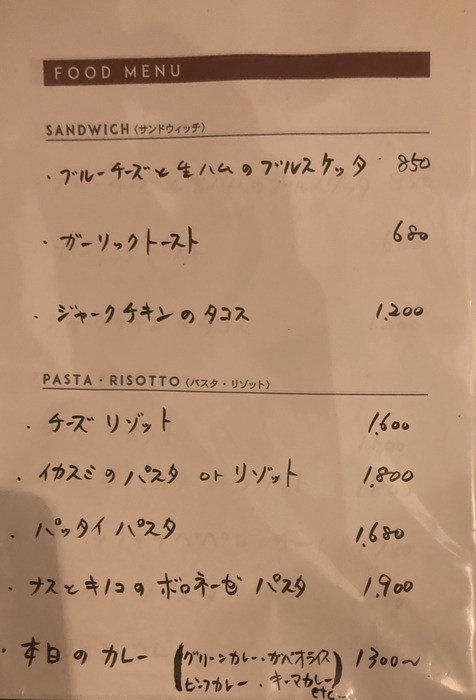 FOOD MENU
SANDWICH〈サンドウィッチ〉
・ブルーチーズと生ハムのブルスケッタ 850
・ガーリックトースト 680
・ジャークチキンのタコス 1,200
PASTA・RISOTTO〈パスタ・リゾット〉
・チーズリゾット 1,600
・イカスミのパスタ or リゾット 1,800
・パッタイパスタ 1,680
・ナスとキノコのボロネーゼパスタ 1,900
・本日のカレー (グリーンカレー・ガパオライス 1300〜
ビーフカレー・キーマカレー etc...)